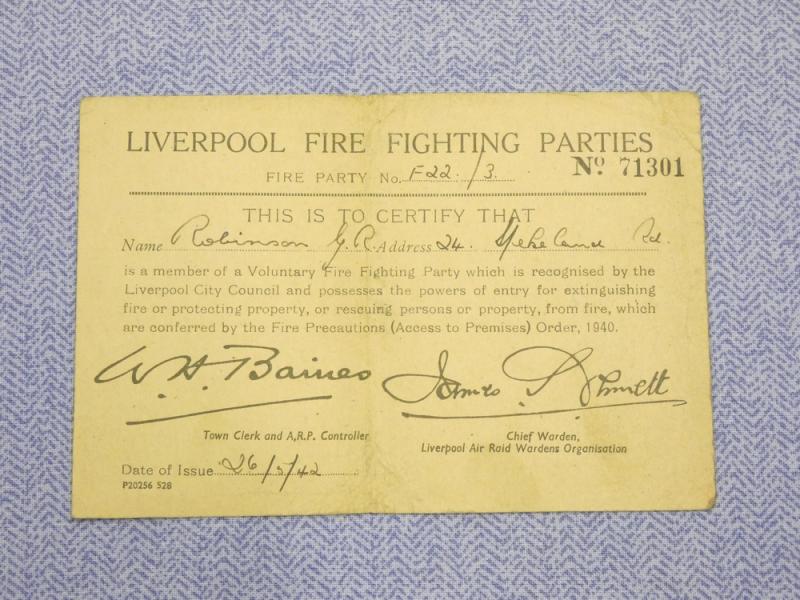 LIVERPOOL FIRE FIGHTING PARTIES
FIRE PARTY No. F22/3. Nº 71301
THIS IS TO CERTIFY THAT
Name Robinson G.R. Address 24. Rd.
is a member of a Voluntary Fire Fighting Party which is recognised by the
Liverpool City Council and possesses the powers of entry for extinguishing
fire or protecting property, or rescuing persons or property, from fire, which
are conferred by the Fire Precautions (Access to Premises) Order, 1940.
W. H. Baines James
Town Clerk and A.R.P. Controller Chief Warden,
Liverpool Air Raid Wardens Organisation
Date of Issue 26/5/42
P20256 528